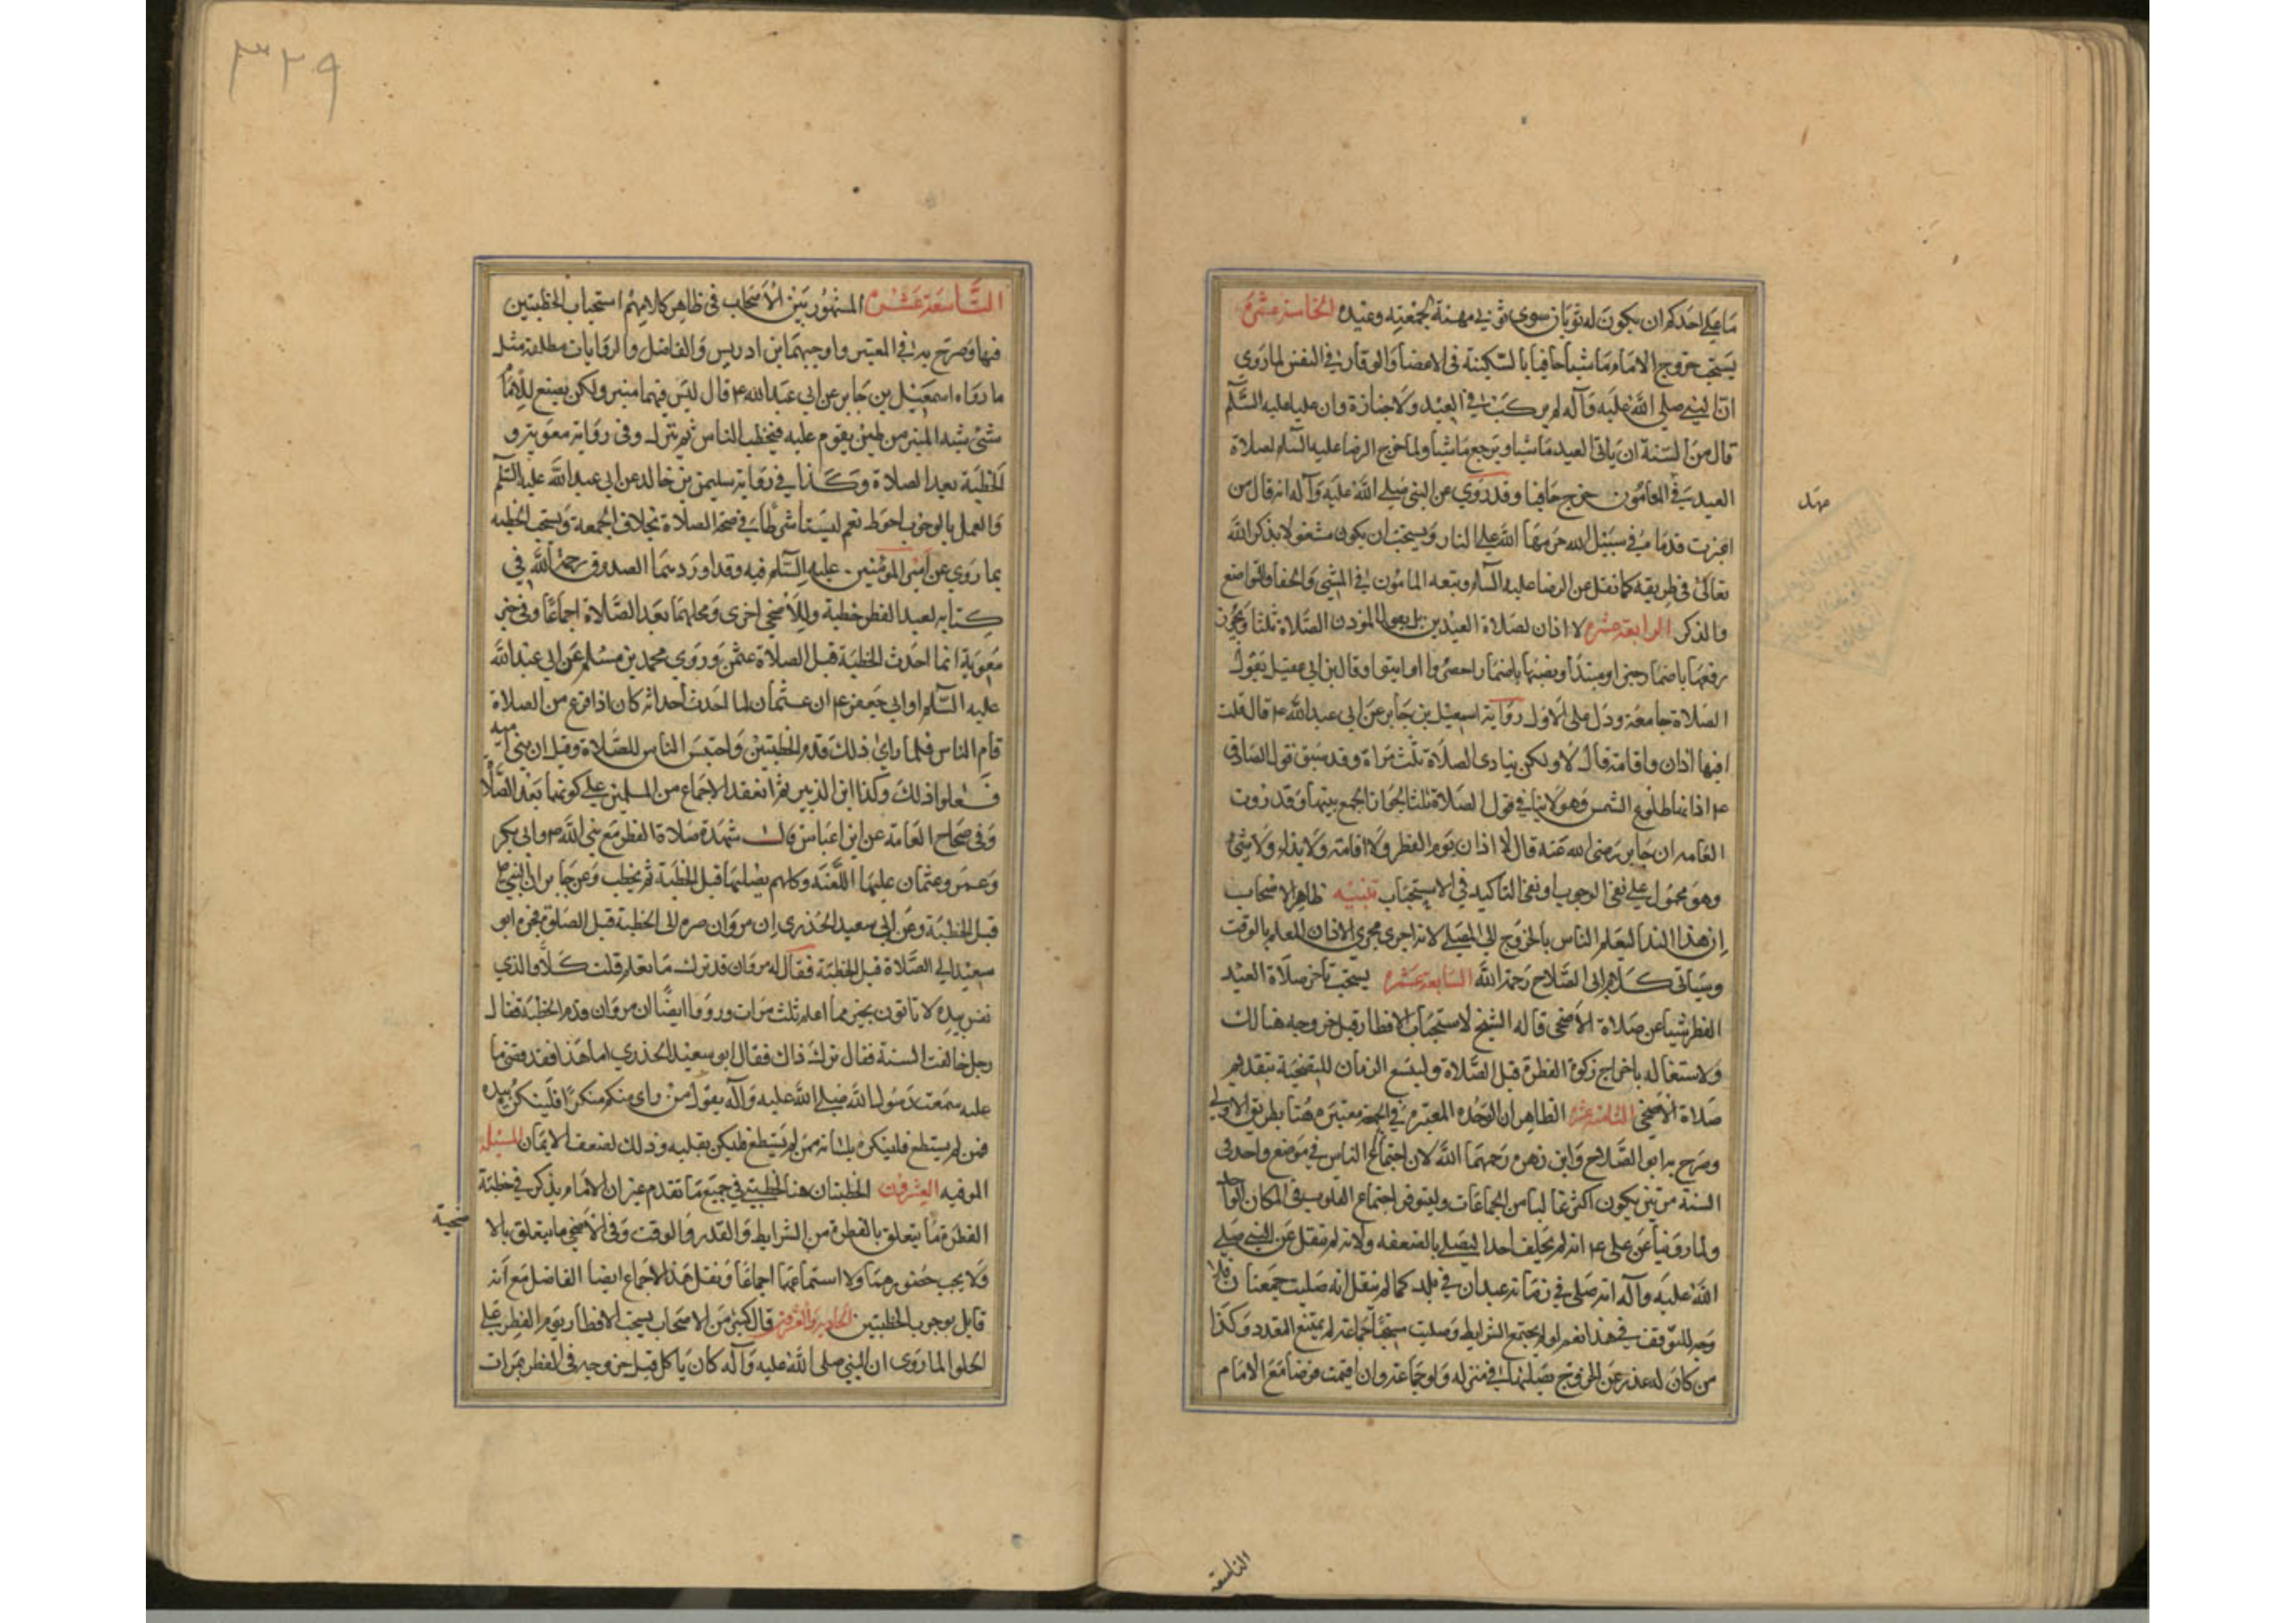 ما على احدكم ان يكون له ثوبان سوى ثوبي مهنة لجمعته وعيده الخامسة عشرة
يستحب خروج الامام ماشيا حافيا بالسكينة في الاعضا والوقار في النفس لما روي
ان النبي صلى الله عليه وآله لم يركب في العيد ولا جنازة وان عليا عليه السلم
قال من السنة ان ياتي العيد ماشيا ويرجع ماشيا ولما خرج الرضا عليه السلم لصلاة
العيد في المامون خرج حافيا وقد روي عن النبي صلى الله عليه وآله انه قال من
اغبرت قدماه في سبيل الله حرمهما الله على النار ويستحب ان يكون مشغولا بذكر الله
تعالى في طريقه كما نقل عن الرضا عليه السلم وتبعه المامون في المشي والحفا والتواضع
والذكر الرابعة عشرة لا اذان لصلاة العيدين بل يقول الموذن الصلاة ثلثا ويجوز
رفعها باضمار خبر او مبتدأ ونصبها باضمار احضروا او ايتوا وقال ابن ابي عقيل يقول
الصلاة جامعة ودل على الاول رواية اسمعيل بن جابر عن ابي عبد الله ع قال قلت
افيها اذان واقامة قال لا ولكن ينادى الصلاة ثلث مرات وقد سبق قول الصادق
ع اذانها طلوع الشمس وهو لا ينافي قول الصلاة ثلثا لجواز الجمع بينهما وقد روت
العامه ان جابر رضى الله عنه قال لا اذان يوم الفطر ولا اقامة ولا نداء ولا شئ
وهو محمول على نفي الوجوب او نفي التاكيد في الاستحباب تنبيه ظاهر الاصحاب
ان هذا الندا ليعلم الناس بالخروج الى المصلى لانه اجرى مجرى الاذان المعلم بالوقت
وسياتي كلام ابي الصلاح رحمه الله السابعة عشرة يستحب تاخر صلاة العيد
الفطر شيا عن صلاة الأضحى قاله الشيخ لاستحباب الافطار قبل خروجه هنالك
ولاشتغاله باخراج زكوة الفطرة قبل الصلاة وليتسع الزمان للتضحية بتقديم
صلاة الأضحى الثامنة عشرة الظاهر ان الوحده المعتبرة في الجمعة معتبرة هنا بطريق الاولى
وصرح به ابو الصلاح وابن زهره رحمهما الله لان اجتماع الناس في موضع واحد في
السنة مرتين يكون اكثر غالبا من الجماعات وليتوفر اجتماع القلوب في المكان الواحد
ولما روينا عن علي ع انه لم يخلف احدا ليصلي بالضعفه ولانه لم ينقل عن النبي صلى
الله عليه وآله انه صلى في زمانه عيدان في بلد كما لم ينقل انه صليت جمعتان فلا
وجه للتوقف في هذا نعم لو لم يجتمع الشرايط وصليت سنة جماعة لم يمتنع التعدد وكذا
من كان له عذر عن الخروج يصليها في منزله ولو جماعة وان اقيمت فرضا مع الامام
التاسعة
التاسعة عشرة المشهور بين الأصحاب في ظاهر كلامهم استحباب الخطبتين
فيها وصرح به في المعتبر واوجبهما ابن ادريس والفاضل والروايات مطلقة مثل
ما رواه اسمعيل بن جابر عن ابي عبد الله ع قال ليس فيهما منبر ولكن يصنع للامام
شئ شبه المنبر من طين يقوم عليه فيخطب الناس ثم ينزل وفي رواية معوية و
الخطبة بعد الصلاة وكذا في رواية سليمن بن خالد عن ابي عبد الله عليه السلم
والعمل بالوجوب احوط نعم ليستا شرطا في صحة الصلاة بخلاف الجمعة ويستحب الخطبه
بما روي عن امير المومنين عليه السلم فيه وقد اوردهما الصدوق رحمه الله في
كتابه لعيد الفطر خطبة وللأضحى اخرى ومحلهما بعد الصلاة اجماعا وفي خبر
معوية انما احدث الخطبة قبل الصلاة عثمن وروي محمد بن مسلم عن ابي عبد الله
عليه السلم او ابي جعفر ع ان عثمان لما احدث احداثه كان اذا فرغ من الصلاة
قام الناس فلما راى ذلك قدم الخطبتين واحتبس الناس للصلاة وقيل ان بني اميه
فعلوا ذلك وكذا ابن الزبير ثم انعقد الاجماع من المسلمين على كونهما بعد الصلاة
وفي صحاح العامة عن ابن عباس قال شهدت صلاة الفطر مع نبي الله ص وابي بكر
وعمر وعثمان عليها اللعنة وكلهم يصليها قبل الخطبة ثم يخطب وعن جابر ان النبي ص
قبل الخطبة وعن ابي سعيد الخذري ان مروان صره الى الخطبة قبل الصلاة فجره ابو
سعيد الى الصلاة قبل الخطبة فقال له مروان قد ترك ما تعلم قلت كلا والذي
نفسي بيده لا تاتون بخير مما اعلم ثلث مرات ورووا ايضا ان مروان قدم الخطبة فقال
رجل خالفت السنة فقال ترك ذاك فقال ابو سعيد الخذري اما هذا فقد قضى ما
عليه سمعت رسول الله صلى الله عليه وآله يقول من راى منكم منكرا فلينكره بيده
فمن لم يستطع فلينكره بلسانه فمن لم يستطع فليكن بقلبه وذلك لضعف الايمان المسئلة
الموفيه العشرون الخطبتان هنا كخطبتي في جميع ما تقدم غير ان الامام يذكر في خطبة
الفطرة ما يتعلق بالفطرة من الشرايط والقدر والوقت وفي الأضحى ما يتعلق بالا
ضحية
ولا يجب حضورهما ولا استماعهما اجماعا ونقل هذا الاجماع ايضا الفاضل مع انه
قايل بوجوب الخطبتين الحادية والعشرون قال كثير من الاصحاب يستحب الافطار يوم الفطر على
الحلو لما روي ان النبي صلى الله عليه وآله كان ياكل قبل خروجه في الفطر تمرات
٣٢٩